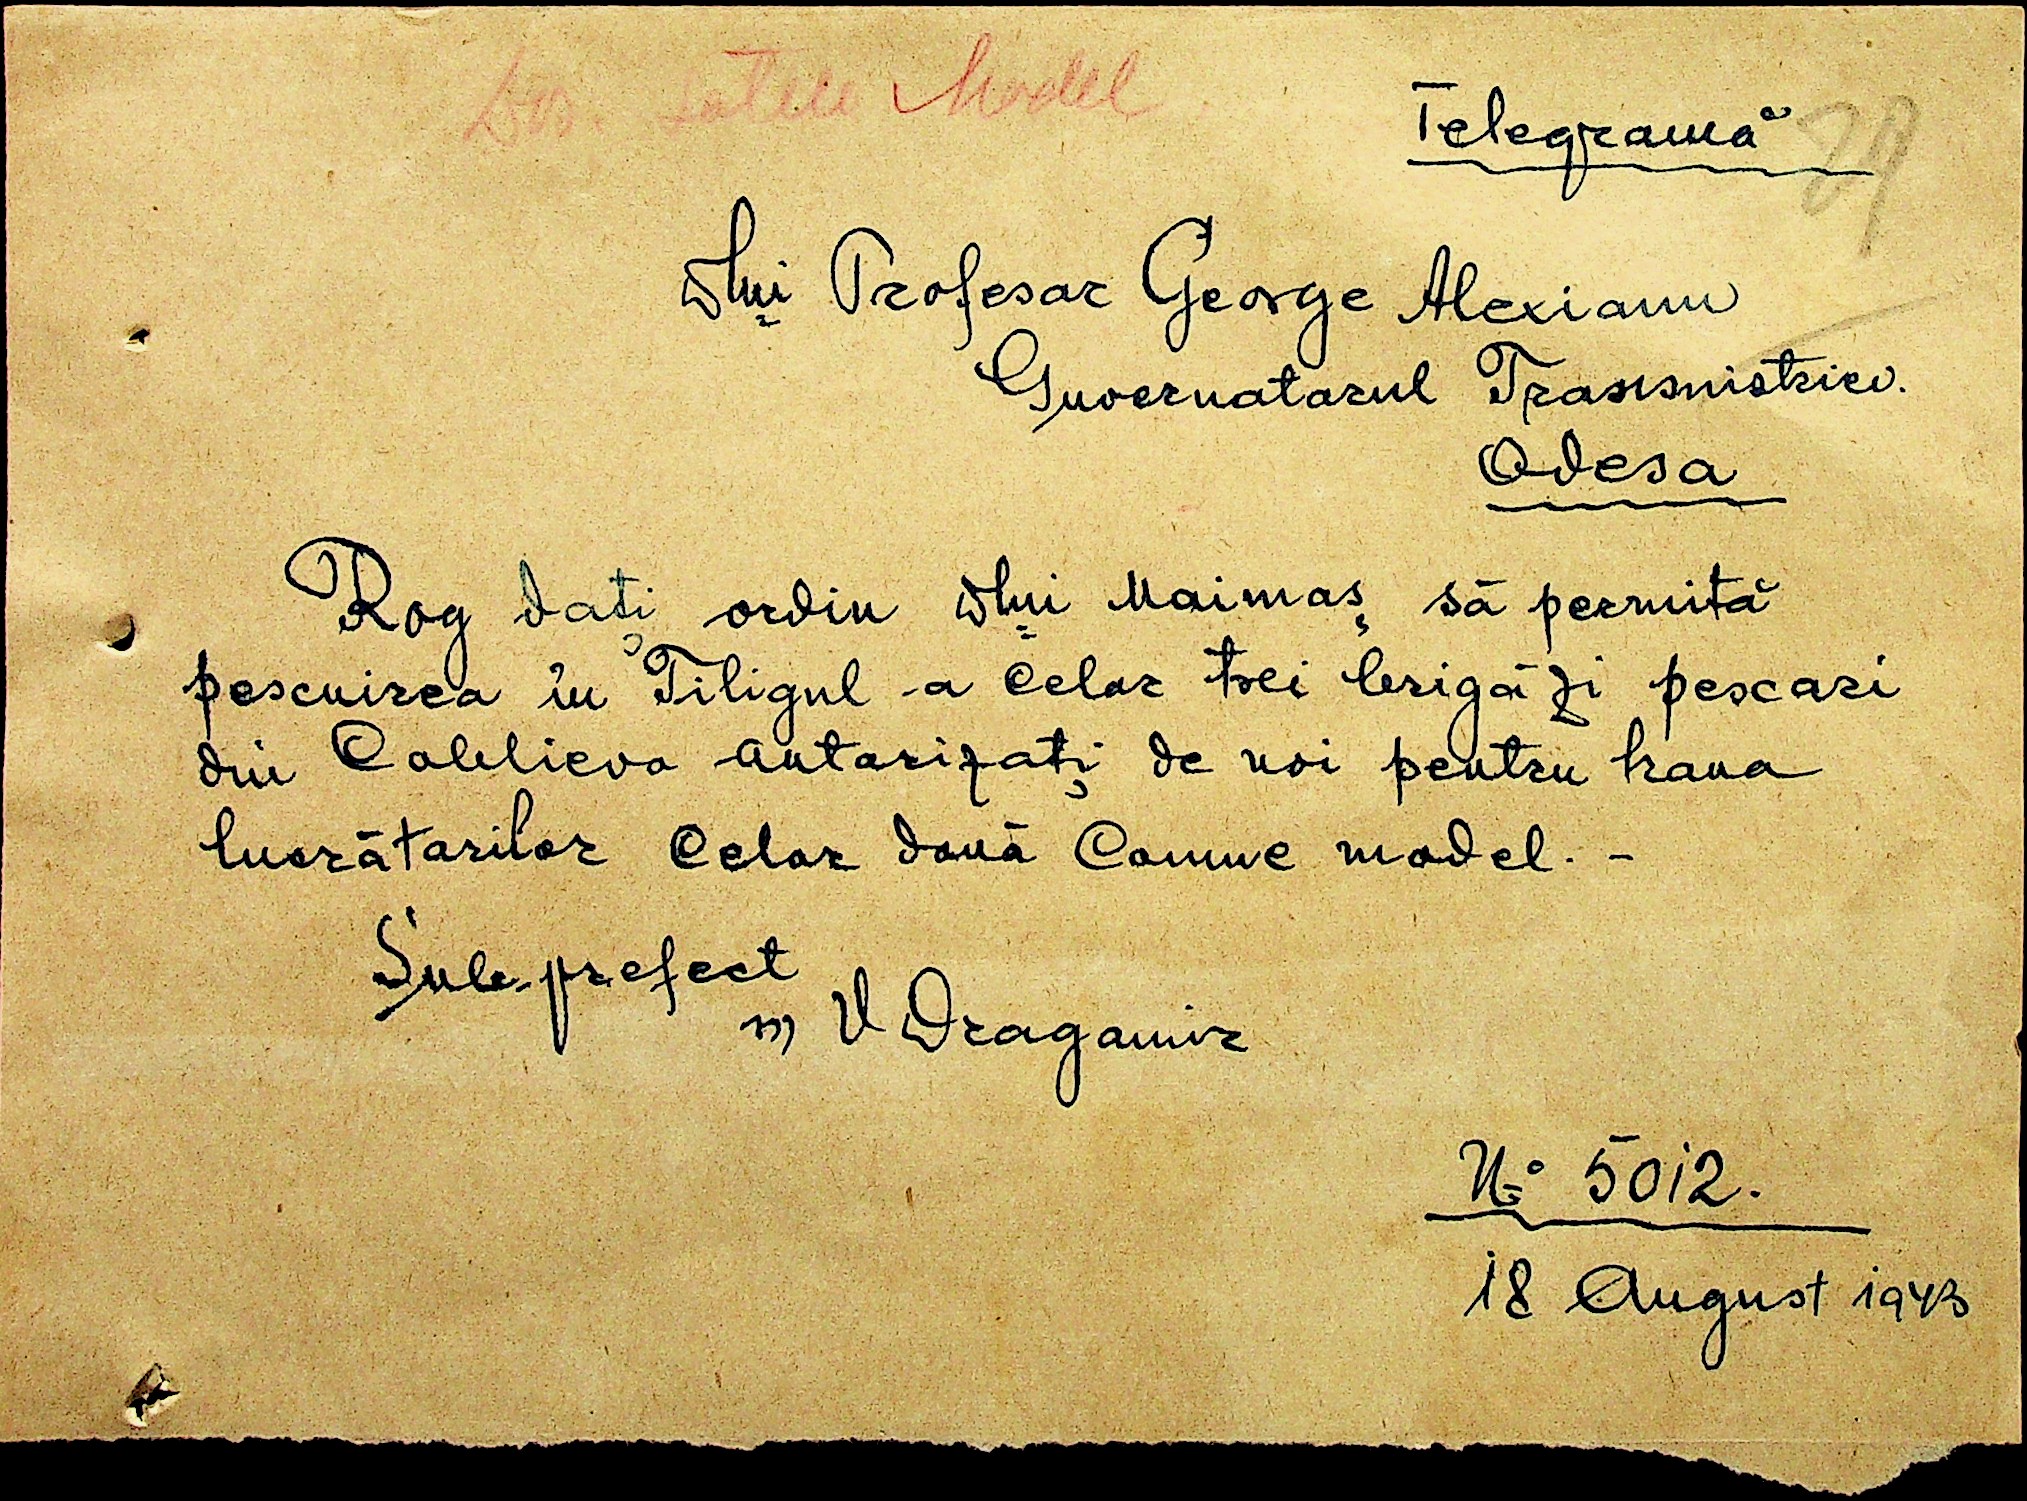 Dos. Satele Model
Telegramă
29
Dlui Profesor George Alexianu
Guvernatorul Transnistriei.
Odesa
Rog dați ordin Dlui Maimaș să permită
pescuirea în Tiligul a celor trei brigăzi pescari
din Coblievo autorizați de noi pentru hrana
lucrătorilor celor două Comune model. -
Sub-prefect
V Dragomir
No 5012.
18 August 1943